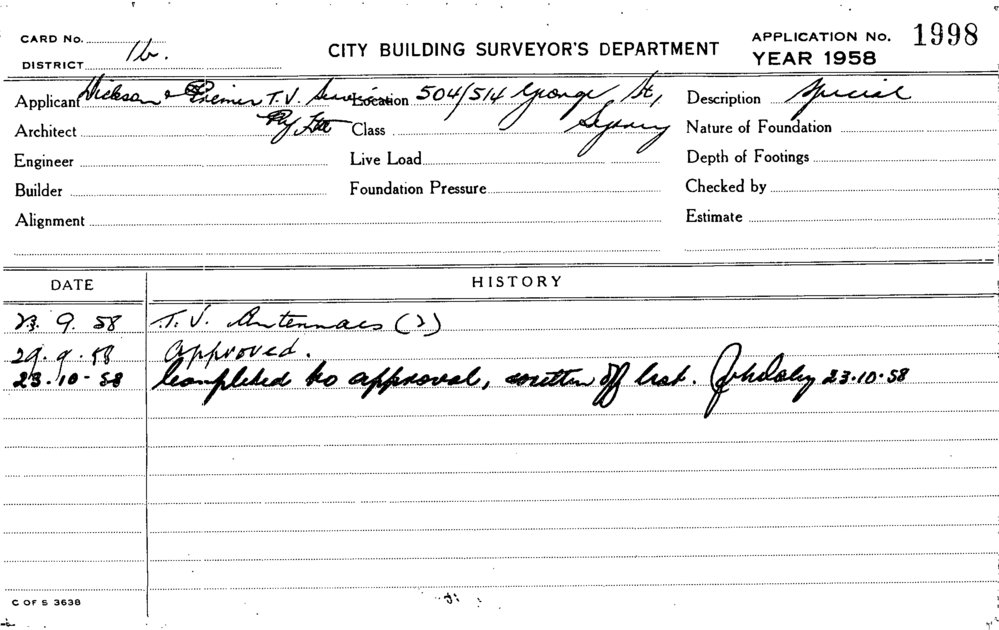 CARD No.
DISTRICT 1b.
CITY BUILDING SURVEYOR'S DEPARTMENT
APPLICATION No. 1998
YEAR 1958
Applicant Dickson & Premier T.V. Services Pty Ltd
Location 504/514 George St, Sydney
Description Special
Architect
Class
Nature of Foundation
Engineer
Live Load
Depth of Footings
Builder
Foundation Pressure
Checked by
Alignment
Estimate
DATE HISTORY
23. 9. 58 T.V. Antennaes (2)
29. 9. 58 Approved.
23.10-58 Completed to approval, written off list. 23.10.58
C OF S 3638